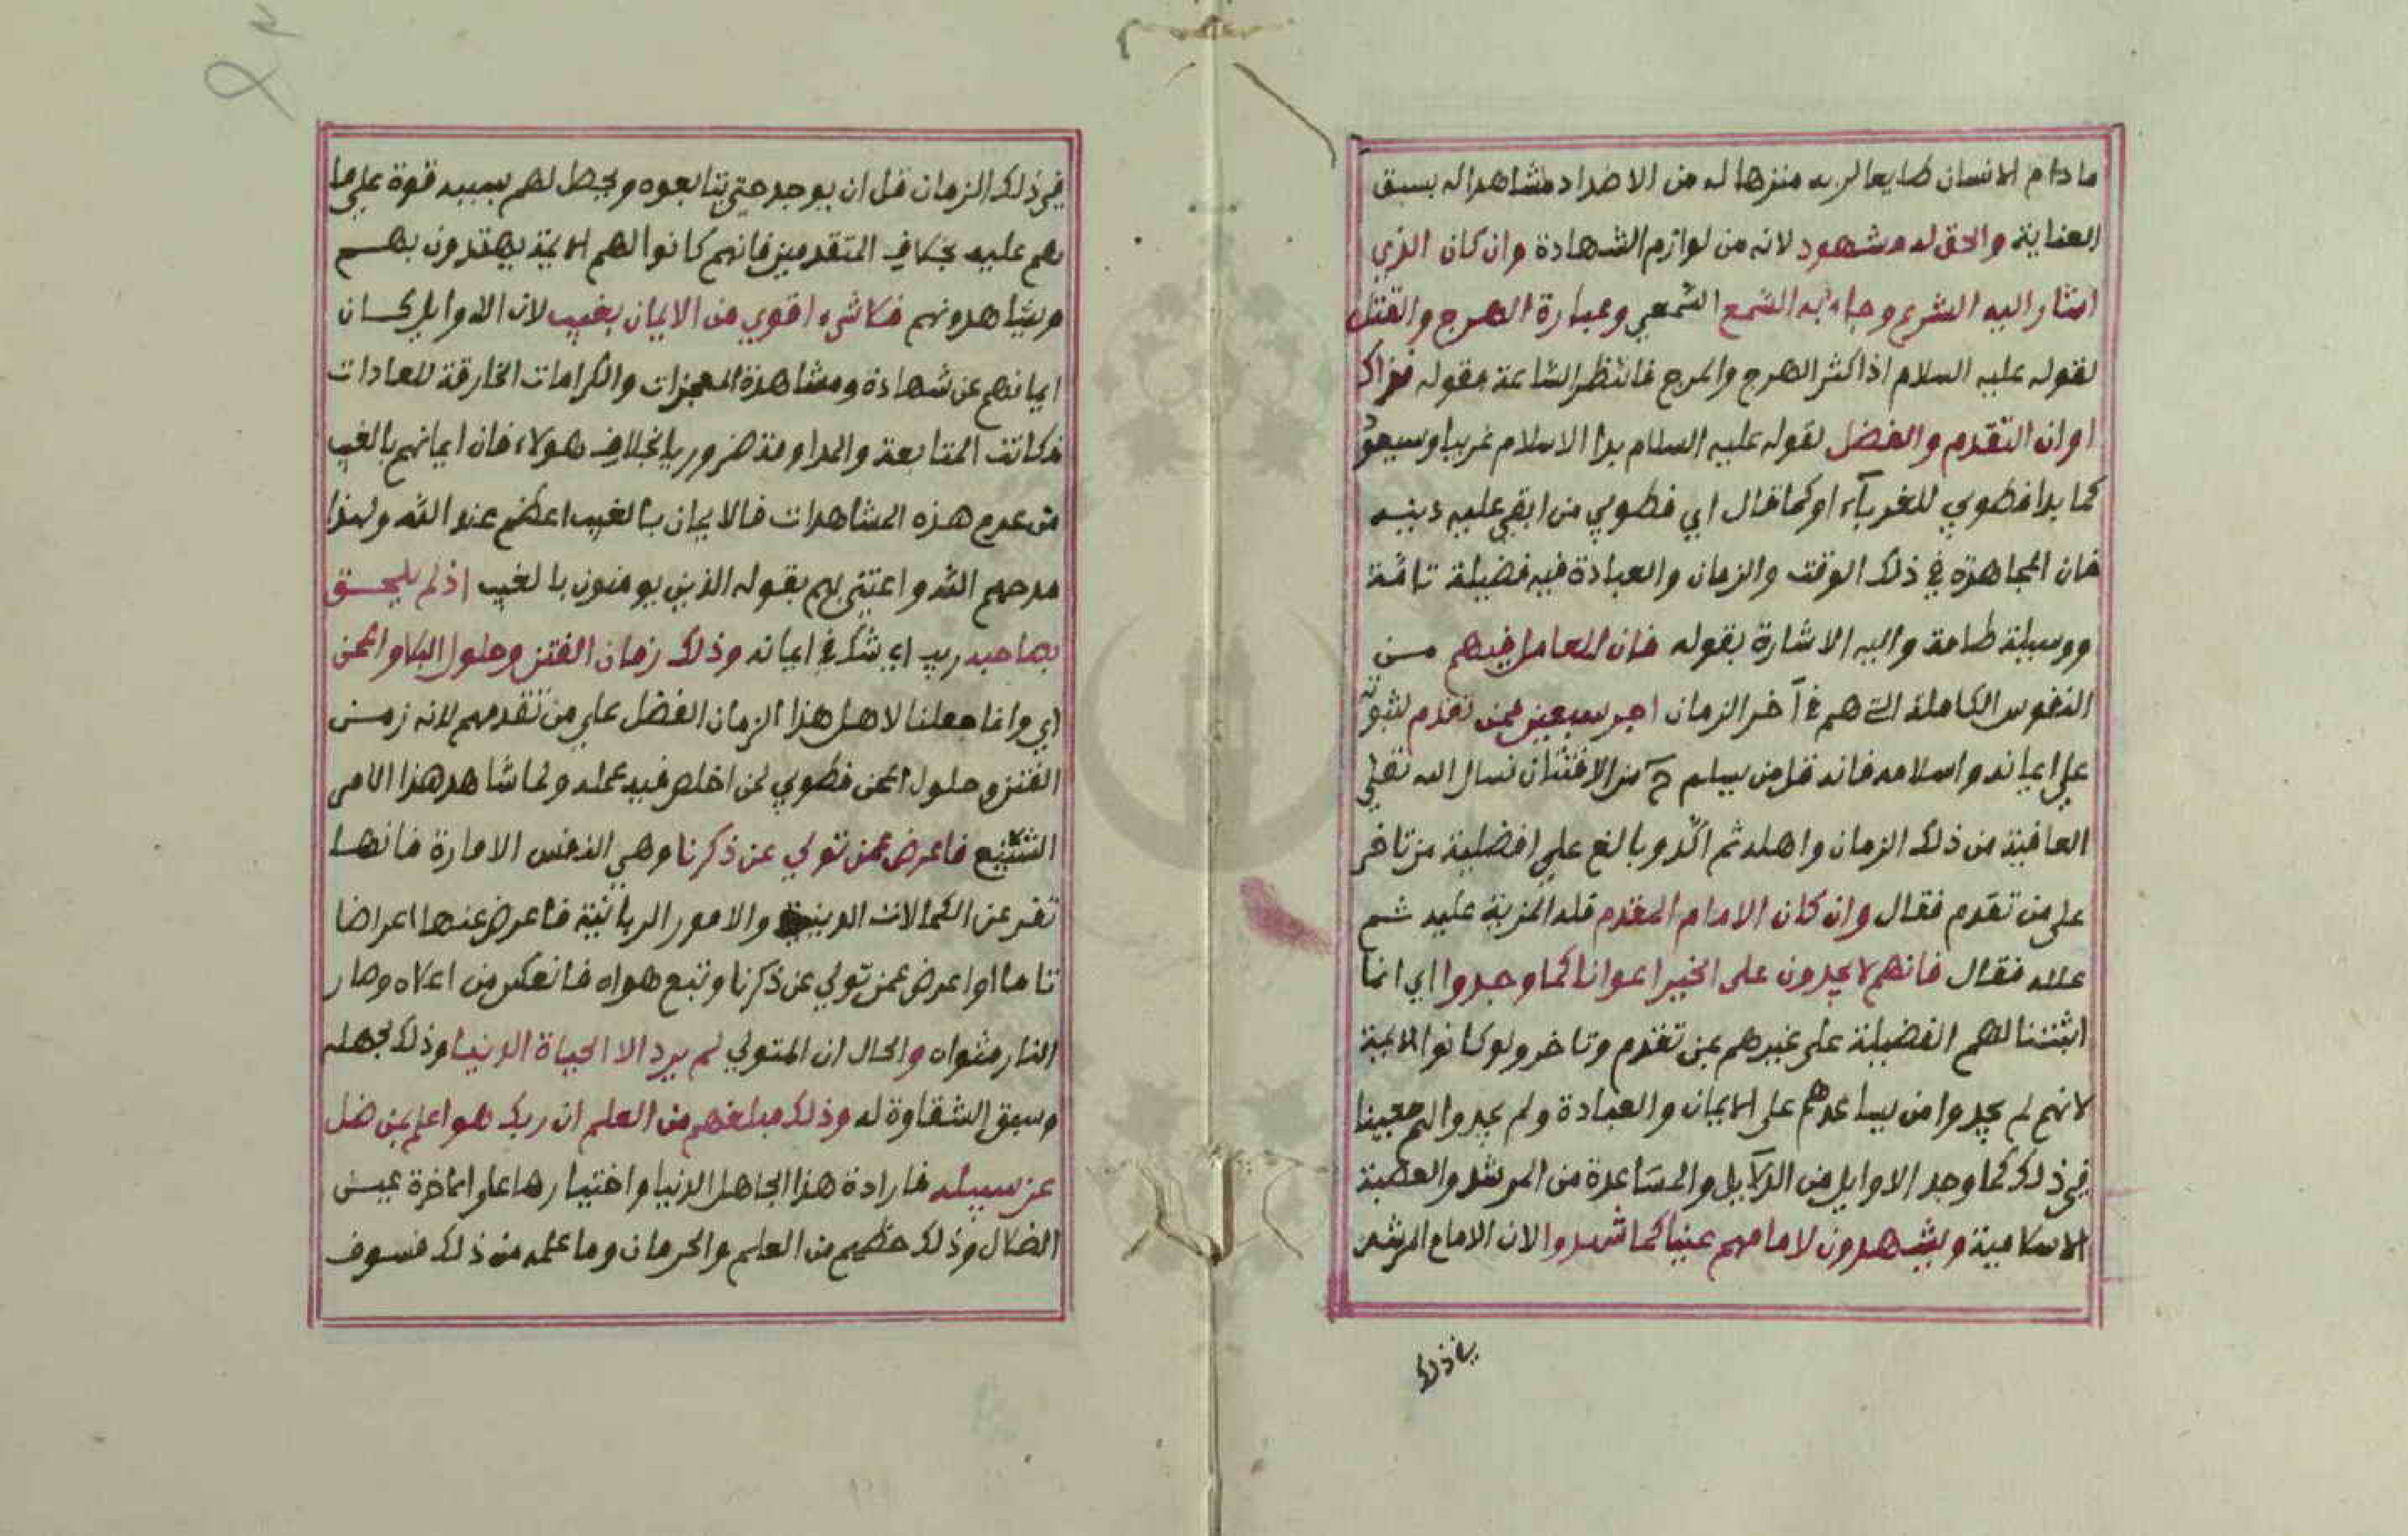 ما دام الانسان طايعا لربه منزها له من الاضداد مشاهدا له بسبق
العناية والحق له مشهود لانه من لوازم الشهادة وان كان الذي
اشار اليه الشرع وجاء به السمع السمعي وعبارة الهرج والقتل
لقوله عليه السلام اذا كثر الهرج والمرج فانتظر الساعة وقوله فذاك
اوان التقدم والفضل لقوله عليه السلام بدا الاسلام غريبا وسيعود
كما بدا فطوبي للغرباء او كما قال اي فطوبي من ابقي عليه دينه
فان المجاهدة في ذلك الوقت والزمان والعبادة فيه فضيلة تامة
ووسيلة طامة واليه الاشارة بقوله فان للعامل فيهم من
النفوس الكاملة التي هم في آخر الزمان اجر سبعين ممن تقدم لثبوته
علي ايمانه واسلامه فانه قل من يسلم ح من الافتتان نسال الله تعالي
العافية من ذلك الزمان واهله ثم اكد وبالغ علي افضلية من تاخر
علي من تقدم فقال وان كان الامام المقدم فله المزية عليه ثم
علله فقال فانهم لا يجدون على الخير اعوانا كما وجدوا اي انما
اثبتنا لهم الفضيلة على غيرهم ممن تقدم وتاخر ولو كانوا الايمة
لانهم لم يجدوا من يساعدهم على الايمان والعبادة ولم يجدوا لهم معينا
في ذلك كما وجد الاوايل من الدلايل والمساعدة من المرشد والعصبة
الاسلامية ويشهدون لامامهم عينا كما شهدوا لان الامام المرشد
في ذلك
في ذلك الزمان قل ان يوجد حتي يتابعوه ويحصل لهم بسببه قوة علي ما
هم عليه بخلاف المتقدمين فانهم كانوا لهم الايمة يهتدون بهم
ويشاهدونهم فلا شيء اقوي من الايمان بغيب لان الاوايل كان
ايمانهم عن شهادة ومشاهدة المعجزات والكرامات الخارقة للعادات
فكانت المتابعة والمداومة ضروريا بخلاف هولاء فان ايمانهم بالغيب
من عدم هذه المشاهدات فالايمان بالغيب اعظم عند الله ولهذا
مدحهم الله واعتني بهم بقوله الذين يومنون بالغيب اذ لم يلحق
بصاحبه ريب اي شك في ايمانه وذلك زمان الفتن وحلول البلا والمحن
اي وانما جعلنا لاهل هذا الزمان الفضل علي من تقدمهم لانه زمن
الفتن وحلول المحن فطوبي لمن اخلص فيه عمله ولما شاهد هذا الامر
الشنيع فاعرض عمن تولي عن ذكرنا وهي النفس الامارة فانها
تفر عن الكمالات الدينية والامور الربانية فاعرض عنها اعراضا
تاما او اعرض عمن تولي عن ذكرنا وتبع هواه فانعكس من اعلاه وصار
النار مثواه والحال ان المتولي لم يرد الا الحياة الدنيا وذلك لجهله
وسبق الشقاوة له وذلك مبلغهم من العلم ان ربك هو اعلم بمن ضل
عن سبيله فارادة هذا الجاهل الدنيا واختيارها على الاخرة عين
الضلال وذلك حظهم من العلم والحرمان وما علمه من ذلك فسوف